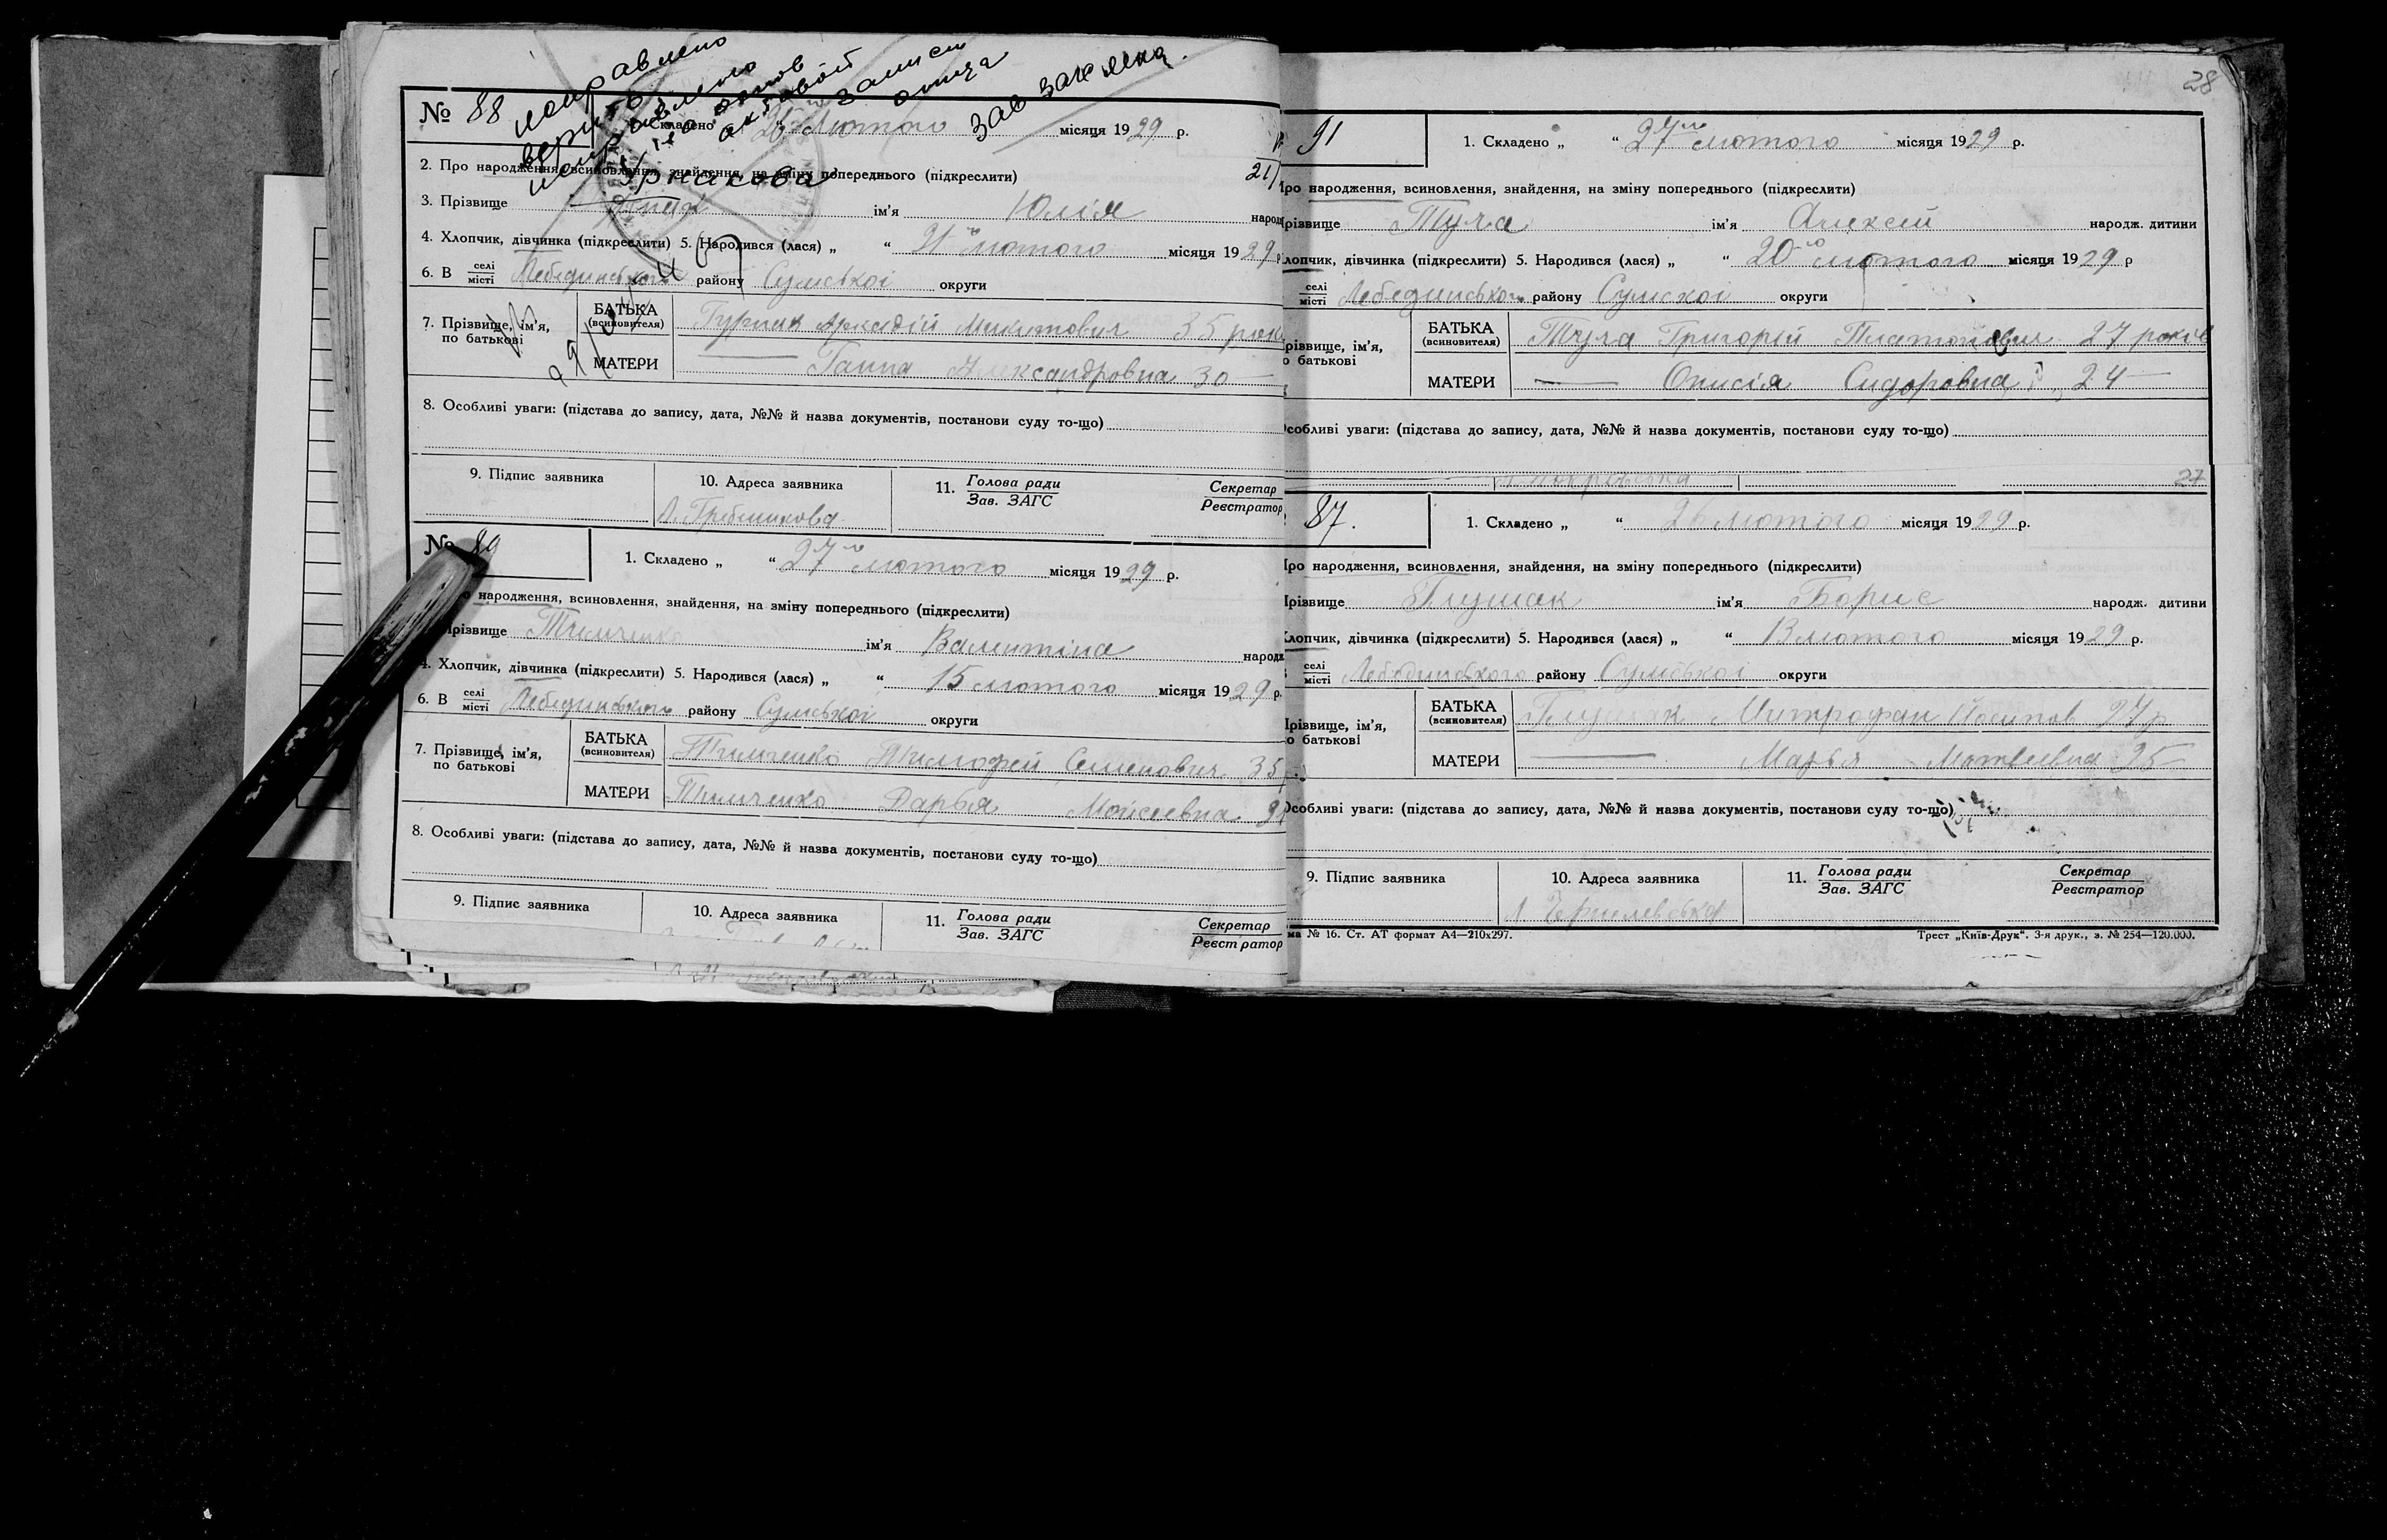 № 88
исправлено
верить
исправлено
на основ
актовой
записи
отца
Зав Загс
1. Складено „ “ 26 Лютого місяця 1929 р.
2. Про народження, всиновлення, знайдення, на зміну попереднього (підкреслити)
3. Прізвище ім'я Юлія народ
4. Хлопчик, дівчинка (підкреслити) 5. Народився (лася) „ “ 21 лютого місяця 1929 р
6. В селі місті Лебединського району Сумської округи
7. Прізвище, ім'я, по батькові
БАТЬКА (всиновителя) Аркадій Микитович 35 рок
МАТЕРИ Ганна Александровна 30
8. Особливі уваги: (підстава до запису, дата, №№ й назва документів, постанови суду то-що)
9. Підпис заявника
10. Адреса заявника
11. Голова ради Зав. ЗАГС
Секретар Реєстратор
№ 89
1. Складено „ “ 27го лютого місяця 1929 р.
народження, всиновлення, знайдення, на зміну попереднього (підкреслити)
різвище Тимченко ім'я Валентіна народж
4. Хлопчик, дівчинка (підкреслити) 5. Народився (лася) „ “ 15 лютого місяця 1929 р.
6. В селі місті Лебединського району Сумської округи
7. Прізвище, ім'я, по батькові
БАТЬКА (всиновителя) Тимченко Тимофей Семенович 35
МАТЕРИ Тимченко Дарья Мойсеевна
8. Особливі уваги: (підстава до запису, дата, №№ й назва документів, постанови суду то-що)
9. Підпис заявника
10. Адреса заявника
11. Голова ради Зав. ЗАГС
Секретар Реєстратор
28
91
1. Складено „ “ 27го лютого місяця 1929 р.
ро народження, всиновлення, знайдення, на зміну попереднього (підкреслити)
різвище Туча ім'я Алексей народж. дитини
лопчик, дівчинка (підкреслити) 5. Народився (лася) „ “ 20го лютого місяця 1929 р
селі місті Лебединського району Сумскої округи
різвище, ім'я, о батькові
БАТЬКА (всиновителя) Туча Григорій Платонович 27 років
МАТЕРИ Онисія Сидоровна 24
собливі уваги: (підстава до запису, дата, №№ й назва документів, постанови суду то-що)
27
87.
1. Складено „ “ 26 лютого місяця 1929 р.
ро народження, всиновлення, знайдення, на зміну попереднього (підкреслити)
різвище Глушак ім'я Борис народж. дитини
лопчик, дівчинка (підкреслити) 5. Народився (лася) „ “ 13 лютого місяця 1929 р.
селі місті Лебединського району Сумської округи
різвище, ім'я, о батькові
БАТЬКА (всиновителя) Глушак Митрофан Йосипов 27 р
МАТЕРИ Марья Матвеевна 25
Особливі уваги: (підстава до запису, дата, №№ й назва документів, постанови суду то-що)
9. Підпис заявника
10. Адреса заявника
11. Голова ради Зав. ЗАГС
Секретар Реєстратор
ма № 16. Ст. АТ формат А4—210х297.
Трест „Київ-Друк“. 3-я друк., з. № 254—120.000.